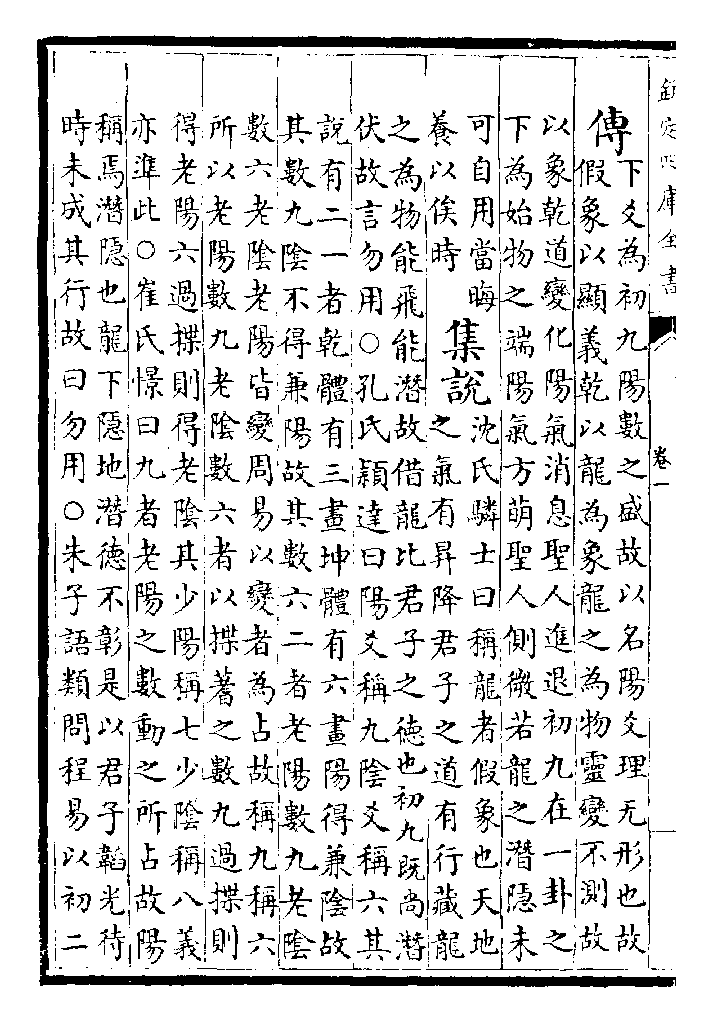 欽定四庫全書
卷一
傳
下爻為初九陽數之盛故以名陽爻理无形也故
假象以顯義乾以龍為象龍之為物靈變不測故
以象乾道變化陽氣消息聖人進退初九在一卦之
下為始物之端陽氣方萌聖人側微若龍之潛隱未
可自用當晦
養以俟時
集說
沈氏驎士曰稱龍者假象也天地
之氣有昇降君子之道有行藏龍
之為物能飛能潛故借龍比君子之德也初九既尚潛
伏故言勿用○孔氏穎達曰陽爻稱九陰爻稱六其
說有二一者乾體有三畫坤體有六畫陽得兼陰故
其數九陰不得兼陽故其數六二者老陽數九老陰
數六老陰老陽皆變周易以變者為占故稱九稱六
所以老陽數九老陰數六者以揲蓍之數九過揲則
得老陽六過揲則得老陰其少陽稱七少陰稱八義
亦準此○崔氏憬曰九者老陽之數動之所占故陽
稱焉潛隱也龍下隱地潛德不彰是以君子韜光待
時未成其行故曰勿用○朱子語類問程易以初二